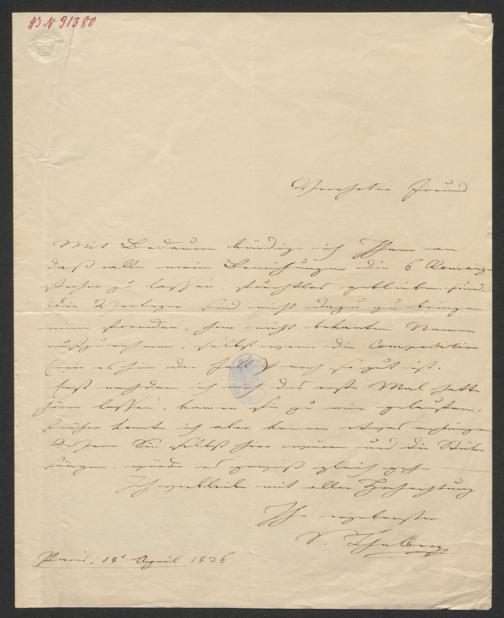 AN 91380
Verehrter Freund
Mit Bedauern kündige ich Ihnen an
daß alle meine Bemühungen die 6 Romanzen
stechen zu lassen, fruchtlos geblieben sind
die Verleger sind nicht dazu zu bringen
einen fremden, hier nicht bekannten Namen
aufzunehmen, selbst wenn die Composition
(wie es hier der Fall) noch so gut ist.
Erst nachdem ich mich das erste Mal hatte
hören lassen, kamen sie zu mir gelaufen.
früher konnte ich aber keinen
Wenn Sie selbst hier wären und die
sängen, würde es gewiß gleich gehen
Ich verbleibe mit aller Hochachtung
Ihr ergebenster
S. Thalberg
Paris, 18t April 1836